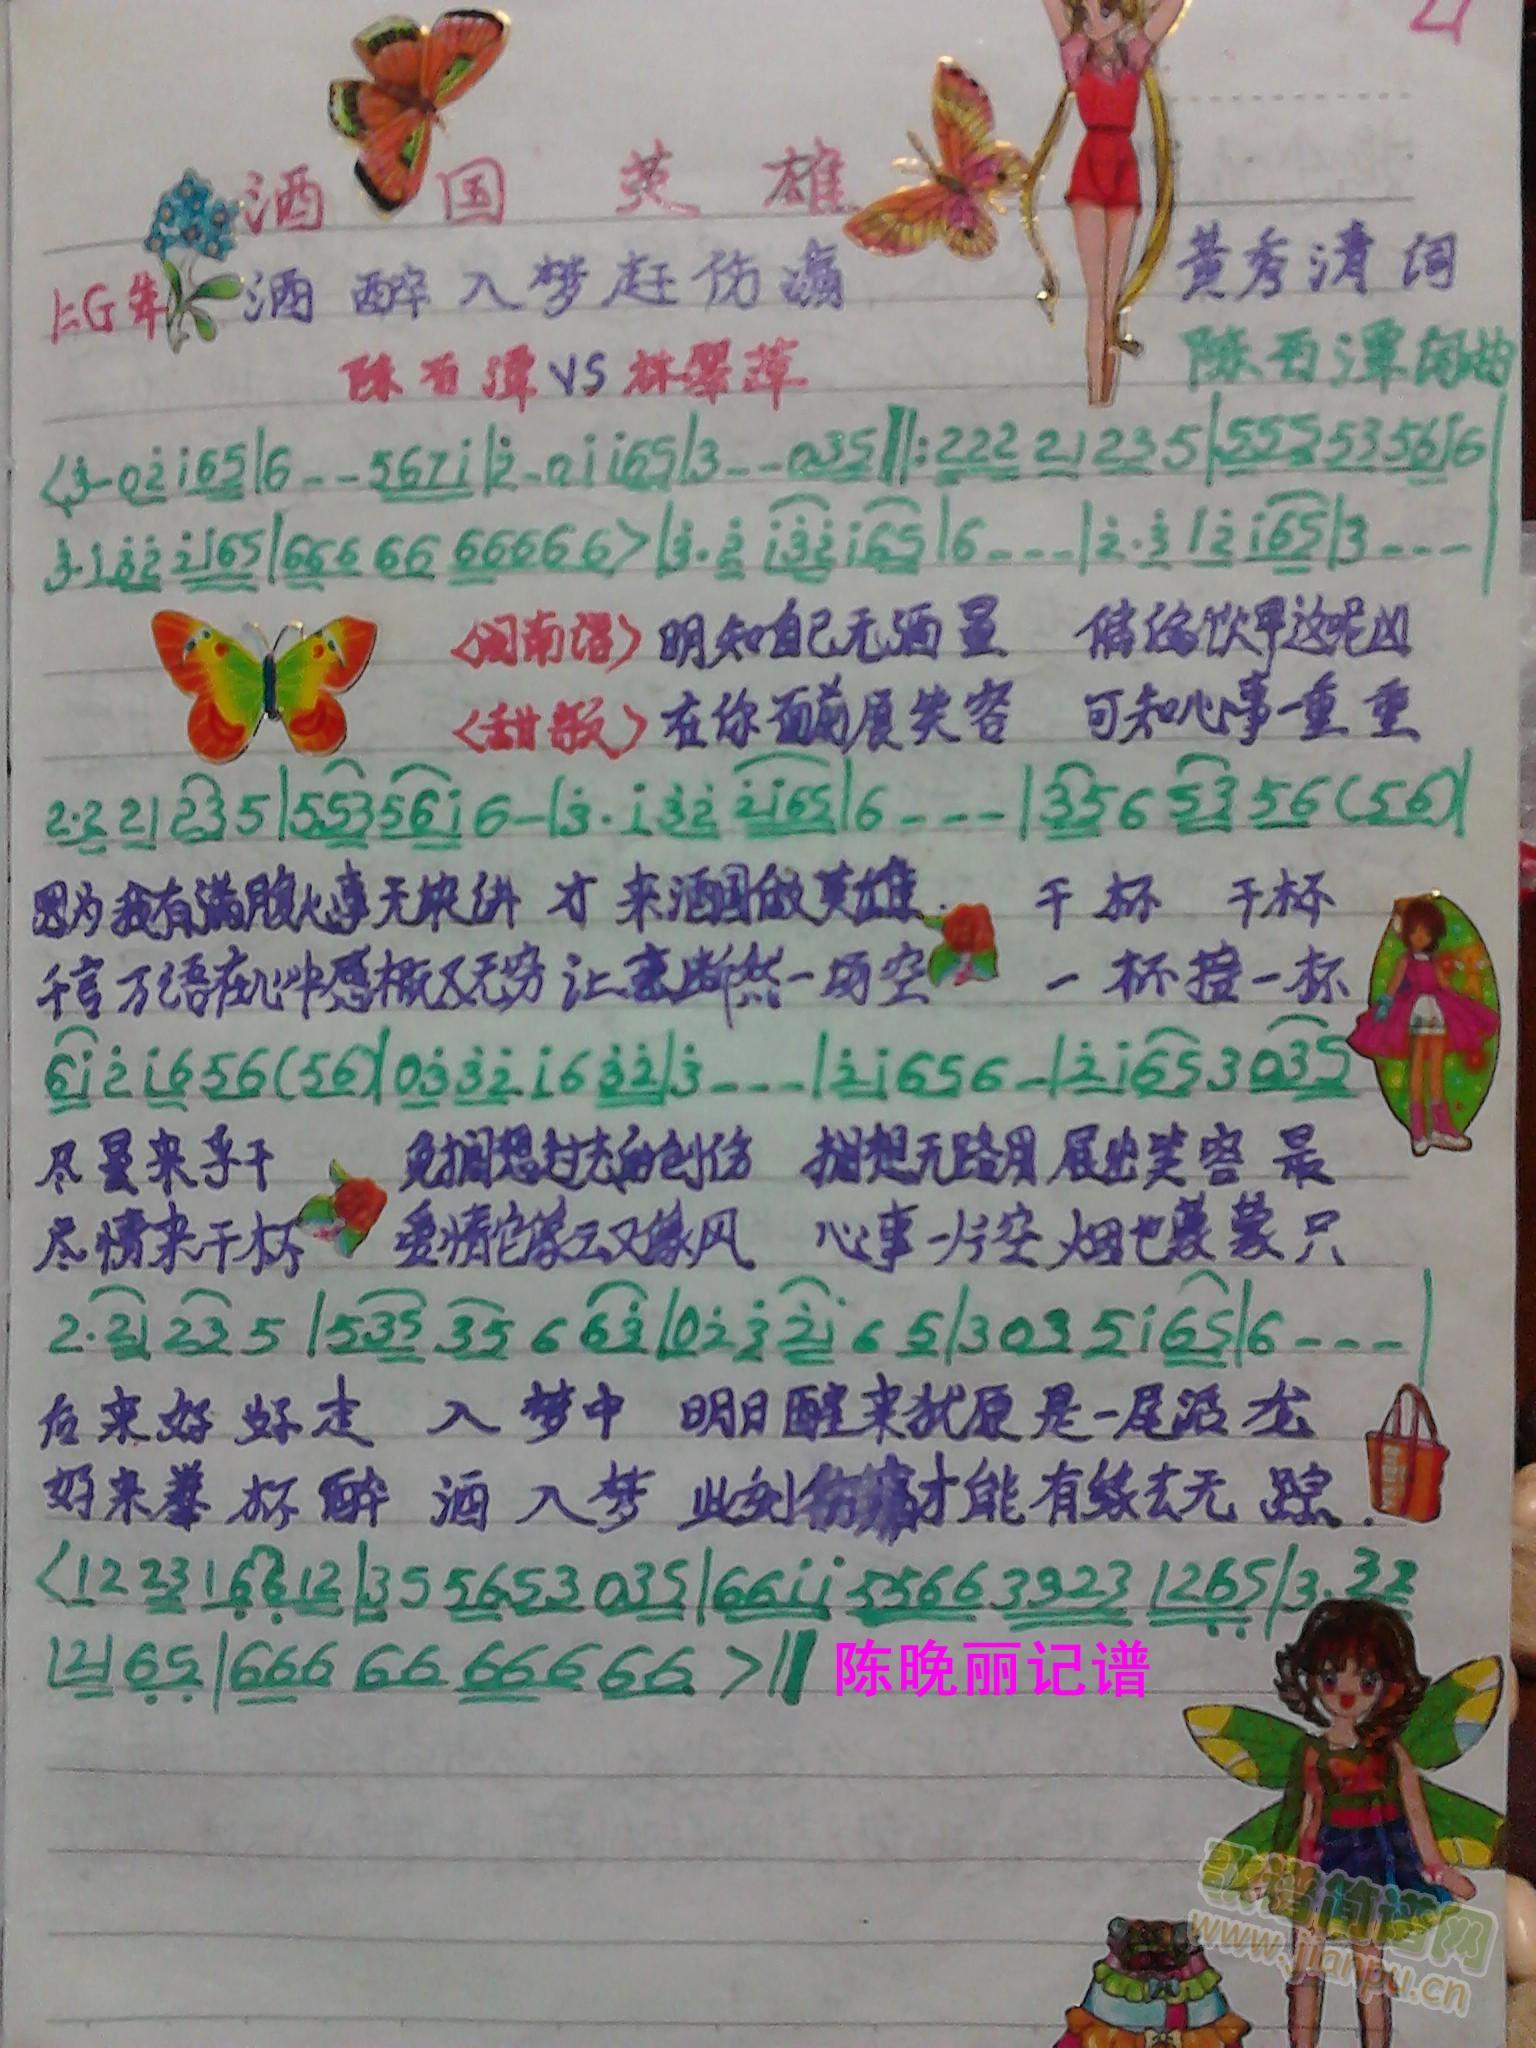 21
酒国英雄
1=G 4/4 酒醉入梦赶伤痛 黄秀清词
陈百潭VS林翠萍 陈百潭闽曲
<3-02165|6--5671|2-01165|3--035||:22221235|5553535616
3·13221 65|666 66 66666>|3·2132165|6---|2·312165|3---
<闽南语> 明知自己无酒量 偏偏饮甲这呢凶
<甜歌> 在你面前展笑容 可知心事一重重
2·221235|5535616-|3·1322165|6---|3565356(56)|
因为我有满腹心事无块讲 才来酒国做英雄. 干杯 干杯
千言万语在心中感概又无穷 让来断然一场空 一杯接一杯
6121656(56)|03321632|3---|21656-|21653035
尽量来乎干 免搁想过去的创伤 搁想无路用展出笑容最
尽情来干杯 爱情它像云又像风 心事一片空烟也蒙蒙只
2·21235|53535663|0232165|3035165|6---|
后来好好走 入梦中 明日醒来犹原是一尾活龙
好来举杯醉 酒入梦 此刻伤痛才能有缘去无踪.
<12231 6612|355653035|6611556633231265|3·32
12165|666 66 666 66>||陈晚丽记谱
歌谱简谱网
www.jianpu.cn